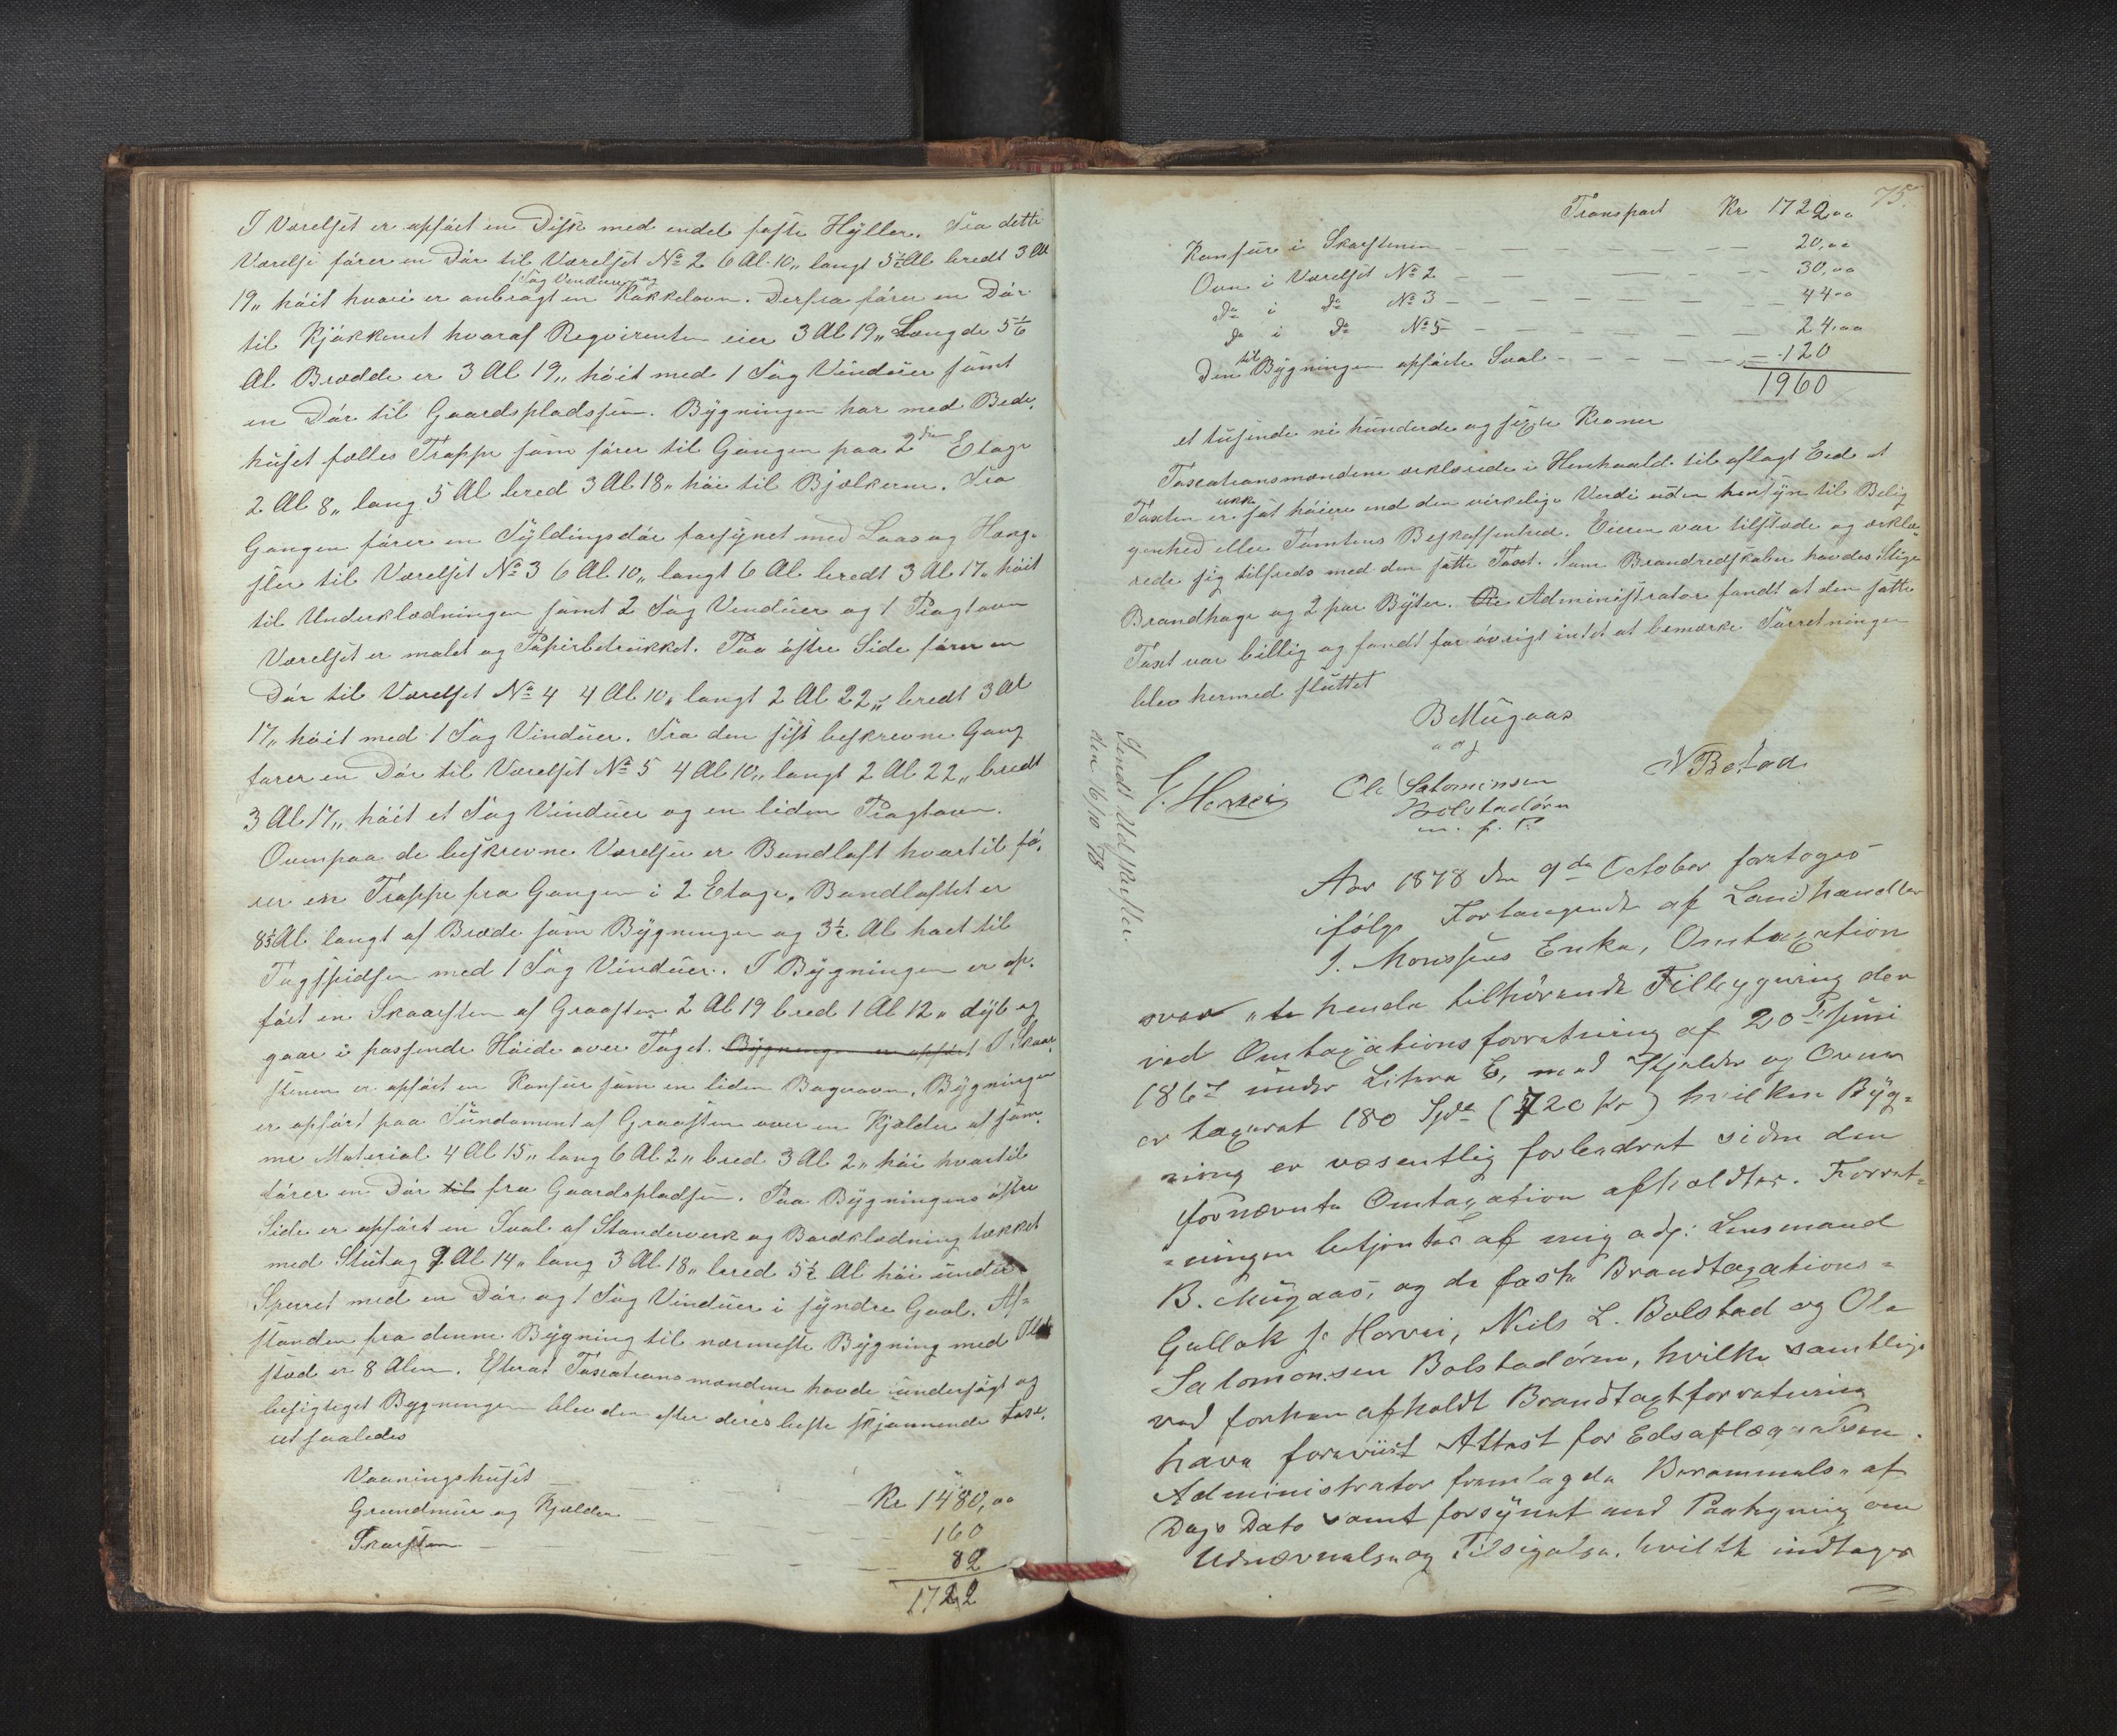 I Værelset er opført en Disk med endel faste Hyller. Fra dette
Værelse fører en Dør til Værelset No 2 6 Al. 10„ langt 5½ Al bredt 3 Al
1 Fag Vinduer og
19„ høit hvori er anbragt en Kakkelovn. Derfra fører en Dør
til Kjøkkenet hvoraf Reqvirenten eier 3 Al 19„ Længde 5⅙
Al Bredde er 3 Al 19„ høit med 1 Fag Vinduer samt
en Dør til Gaardspladssen. Bygningen har med Bede-
huset fælles Trappe som fører til Gangen paa 2den Etage
2 Al 8„ lang 5 Al bred 3 Al 18„ høi til Bjælkerne. Fra
Gangen fører en Fyldingsdør forsynet med Laas og Hæng-
sler til Værelset No 3 6 Al 10„ langt 6 Al bredt 3 Al 17„ høit
til Underklædningen samt 2 Fag Vinduer og 1 Pragtovn
Værelset er malet og Papirbetrukket. Paa østre Side fører en
Dør til Værelset No 4 4 Al 10„ langt 2 Al 22„ bredt 3 Al
17„ høit med 1 Fag Vinduer. Fra den sist beskrevne Gang
fører en Dør til Værelset No 5 4 Al 10„ langt 2 Al 22„ bredt
3 Al 17„ høit et Fag Vinduer og en liden Pragtovn.
Ovenpaa de beskrevne Værelser er Bandloft hvortil fø-
rer en Trappe fra Gangen i 2 Etage. Bandloftet er
Al langt af Brede som Bygningen og 3½ Al høit til
Tagspidsen med 1 Fag Vinduer. I Bygningen er op-
ført en Skorsten af Graasten 2 Al 19 bred 1 Al 12„ dyb og
gaar i passende Høide over Taget. Bygningen er opført I Skor-
stenen er opført en Komfur som en liden Bagerovn. Bygningen
er opført paa Fundament af Graasten over en Kjælder af sam-
me Material 4 Al 15„ lang 6 Al 2„ bred 3 Al 2„ høi hvortil
fører en Dør til fra Gaardspladsen. Paa Bygningens østre
Side er opført en Sval af Standerverk og Bordklædning tækket
med Skutag 9 Al 14„ lang 3 Al 18„ bred 5½ Al høi under
Sperret med en Dør og 1 Fag Vinduer i syndre Gavl. Af-
standen fra denne Bygning til nærmeste Bygning med Ild-
sted er 8 Alen. Efterat Taxationsmændene havde undersøgt og
besigtiget Bygningen blev den efter deres beste skjønnende tax-
ert saaledes
Vaaningshuset Kr 1480,00
Grundmur og Kjelder 160
Skorsten 82
1722
75.
Transport Kr 1722,00
Komfur i Skorstenen 20,00
Ovn i Værelset No 2 30,00
do i do No 3 44,00
do i do No 5 24,00
til
Den Bygningen opførte Sval 120
1960
et tusinde ni hunderde og sexti Kroner
Taxationsmændene erklærede i Henhold til aflagt Eed at
ikke
Taxten er sat høiere end den virkelige Verdi uden hensyn til Belig-
genhed eller Tomtens Beskaffenhed. Eieren var tilstede og erklæ-
rede sig tilfreds med den satte Taxt. Som Brandredskaber havdes Stige
Brandhage og 2 par Bytter. Administrator fandt at den satte
Taxt var billig og fandt for øvrigt intet at bemærke Forretningen
blev hermed sluttet
B Mugaas
adj
G. Horvei Ole Salomonsen
Bolstadøren
m. f. P.
N Bolstad
Sendt Udskrifter
den 16/10 78
Aar 1878 den 9de October foretoges
ifølge Forlangende af Landhandler
J. Monssens Enke, Omtaxation
over „te hende tilhørende Tilbygning der
ved Omtaxationsforretning af 20de Juni
1867 under Litera E, med Kjelder og Ovne
er taxerat 180 Spd (720 Kr) hvilken Byg-
ning er væsentlig forbedret siden den
fornævnte Omtaxation afholdtes. Forret-
ningen betjentes af mig adj: Lensmand
B. Mugaas, og de faste Brandtaxations-
Gullak J. Horvei, Niels L. Bolstad og Ole
Salomonsen Bolstadøren, hvilke samtlige
ved forhen afholdt Brandtaxtforretning
have foreviist Attest for Edsaflæggelsen.
Administrator fremlagde Berammelse af
Dags Dato samt forsynet med Paategning om
Udnævnelse og Tilsigelse, hvilke indtages